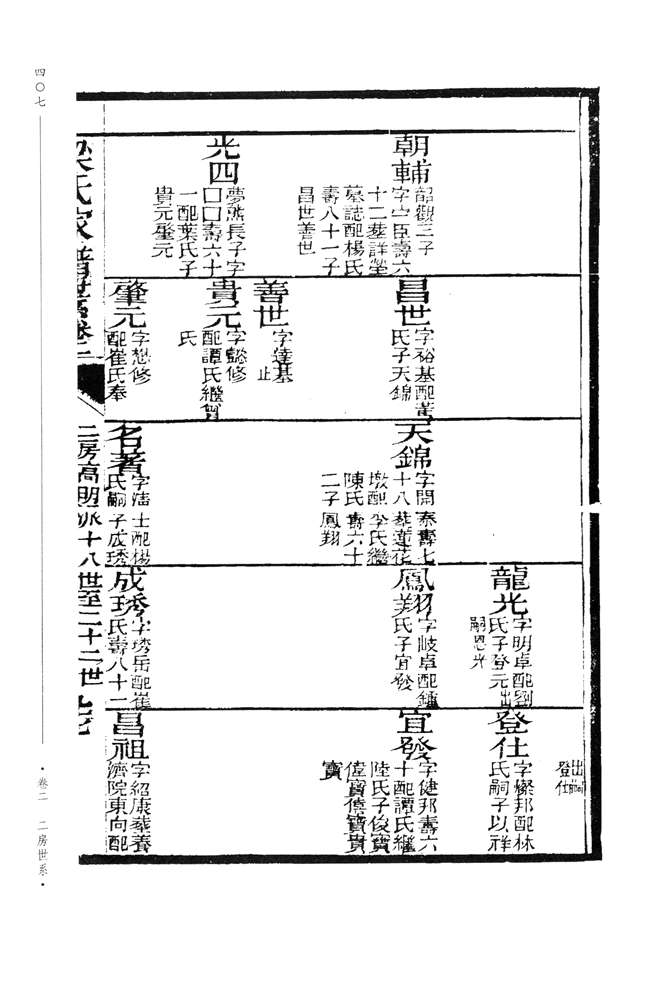 四〇七
朝輔
韶觀三子
字㝉臣壽六
十二葬詳塋
墓誌配楊氏
壽八十一子
昌世善世
光四
夢熊長子字
囗囗壽六十
一配葉氏子
貴元肇元
昌世
字裕基配黃
氏子天錦
善世
字達基
止
貴元
字懿修
配譚氏繼何
氏
肇元
字懋修
配崔氏奉
天錦
字開泰壽七
十八葬蓮花
墩配李氏繼
陳氏壽六十
二子鳳翔
名著
字清士配楊
氏嗣子成琇
龍光
字明卓配劉
氏子登元出
嗣恩光
鳳翔
字岐卓配鍾
姜氏子宜發
成琇
字琇岳配崔
氏壽八十二
出嗣
登仕
登仕
字燦邦配林
氏嗣子以祥
宜發
字健邦壽六
十配譚氏繼
陸氏子俊寶
偉寶僖寶貴
寶
昌祖
字紹康葬養
濟院東向配
梁氏家譜世系卷二
二房高明派十八世至二十二世
卷二 二房世系